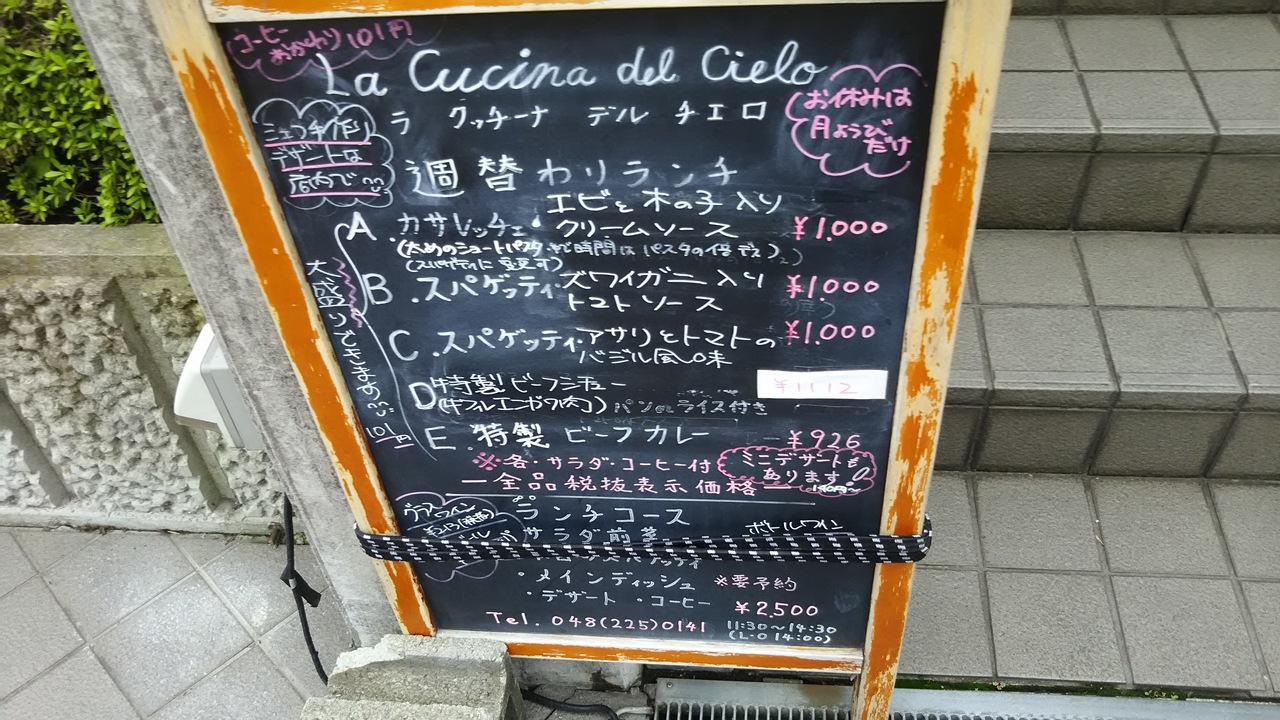 コーヒー
おかわり101円
La Cucina del Cielo
ラ クッチーナ デル チエロ
お休みは
月ようび
だけ
シェフ手作り
デザートは
店内で
週替わりランチ
エビと木の子入り
A カサレッチェ・クリームソース ¥1.000
(太めのショートパスタ 時間は パスタの倍デス)
(スパゲティに変更可)
B .スパゲッティ・ズワイガニ入り ¥1.000
トマトソース
C .スパゲッティ・アサリとトマトの ¥1.000
バジル風味
D 特製ビーフシチュー ¥1112
(牛フルエンガワ肉) パンorライス付き
E .特製 ビーフカレー ¥926
大盛りできます
101円
※各・サラダ・コーヒー付
ミニデザートも
あります
ー全品税抜表示価格ー
グラス
ワイン
ランチコース
・サラダ前菜
ボトルワイン
スパゲッティ
・メインディッシュ ※要予約
・デザート ・コーヒー ¥2.500
Tel. 048(225)0141 11:30〜14:30
(L・O 14:00)